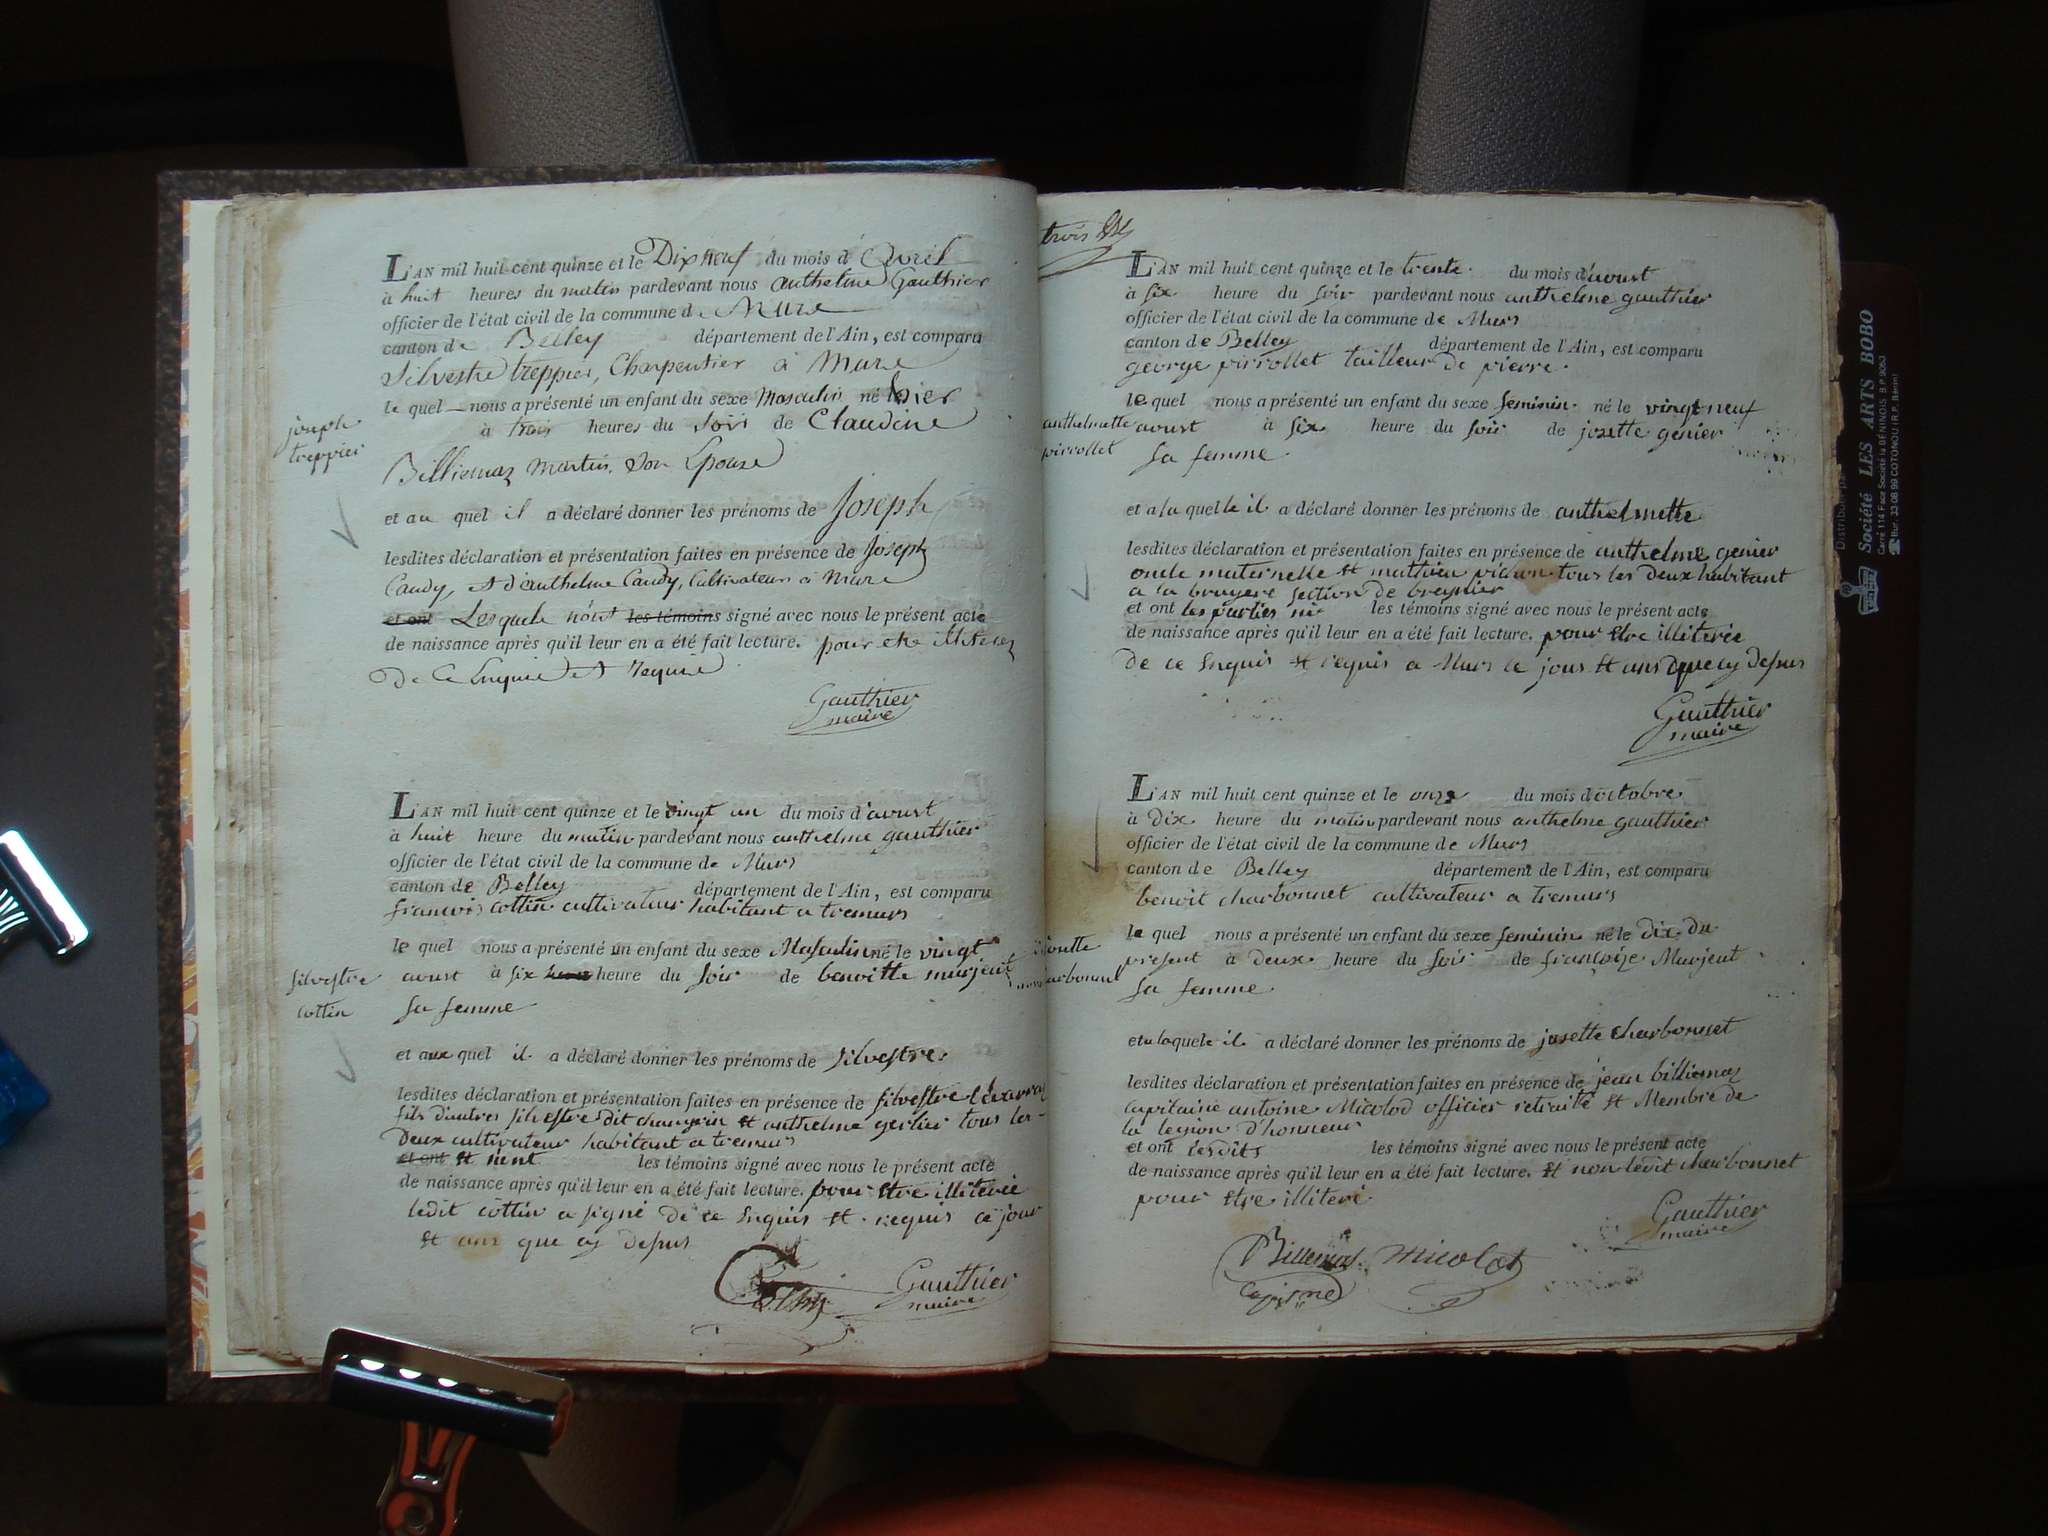 L'AN mil huit cent quinze et le Dix neuf du mois d'Avril
à huit heures du matin pardevant nous anthelme Gauthier
officier de l'état civil de la commune de Mure
canton de Belley département de l'Ain, est comparu
Silvestre treppier, Charpentier à Mure
le quel nous a présenté un enfant du sexe Masculin né hier
joseph
treppier
à trois heures du Soir de Claudine
Billiemaz Martin, Son Epouse
et au quel il a déclaré donner les prénoms de Joseph
lesdites déclaration et présentation faites en présence de Joseph
Caudy, et d'anthelme Caudy, Cultivateurs à Mure
et ont Lesquels n'ont les témoins signé avec nous le présent acte
de naissance après qu'il leur en a été fait lecture. pour etre illiterez
De Ce Enquis et Requis
Gauthier
maire
L'AN mil huit cent quinze et le vingt un du mois d'avoust
à huit heure du matin pardevant nous anthelme gauthier
officier de l'état civil de la commune de Murs
canton de Belley département de l'Ain, est comparu
francois cottin cultivateur habitant a tremurs
le quel nous a présenté un enfant du sexe Masculin né le vingt
silvestre
cottin
avoust à six heure du soir de benoitte murjent
sa femme
et aux quel il a déclaré donner les prénoms de silvestre
lesdites déclaration et présentation faites en présence de silvestre
fils d'autres silvestre dit changrin et anthelme gerlier tous les
deux cultivateur habitant a tremurs
et ont et n'ent les témoins signé avec nous le présent acte
de naissance après qu'il leur en a été fait lecture. pour etre illiterée
ledit cottin a signé de ce enquis et requis ce jour
et ans que cy depus
Cottin
Gauthier
maire
trois
L'AN mil huit cent quinze et le trente du mois d'avoust
à six heure du soir pardevant nous anthelme gauthier
officier de l'état civil de la commune de Murs
canton de Belley département de l'Ain, est comparu
george pirrollet tailleur de pierre
le quel nous a présenté un enfant du sexe feminin né le vingt neuf
anthelmette
pirrollet
avoust à six heure du soir de josette genier
sa femme
et a la quelle il a déclaré donner les prénoms de anthelmette
lesdites déclaration et présentation faites en présence de anthelme genier
oncle maternelle et mathieu tous les deux habitant
a la bruyere section de bregnier
et ont les parties les témoins signé avec nous le présent acte
de naissance après qu'il leur en a été fait lecture. pour etre illiterée
de ce enquis et requis a Murs ce jour et ans que cy depus
Gauthier
maire
L'AN mil huit cent quinze et le onze du mois d'octobre
à dix heure du matin pardevant nous anthelme gauthier
officier de l'état civil de la commune de Murs
canton de Belley département de l'Ain, est comparu
benoit charbonnet cultivateur a tremurs
le quel nous a présenté un enfant du sexe feminin né le dix du
present à deux heure du soir de françoize Murjent
sa femme
et a laquele il a déclaré donner les prénoms de josette charbonnet
lesdites déclaration et présentation faites en présence de jean billiemaz
capitaine antoine Micolod officier retraité et Membre de
la legion d'honneur
et ont lesdits les témoins signé avec nous le présent acte
de naissance après qu'il leur en a été fait lecture. et non ledit charbonnet
pour etre illiteré
Gauthier
maire
Billiemaz micolot
Société LES ARTS BOBO
Carré 114 Face Société la BÉNINOIS B.P. 9053
Bur. 33 08 99 COTONOU (R.P. Bénin)